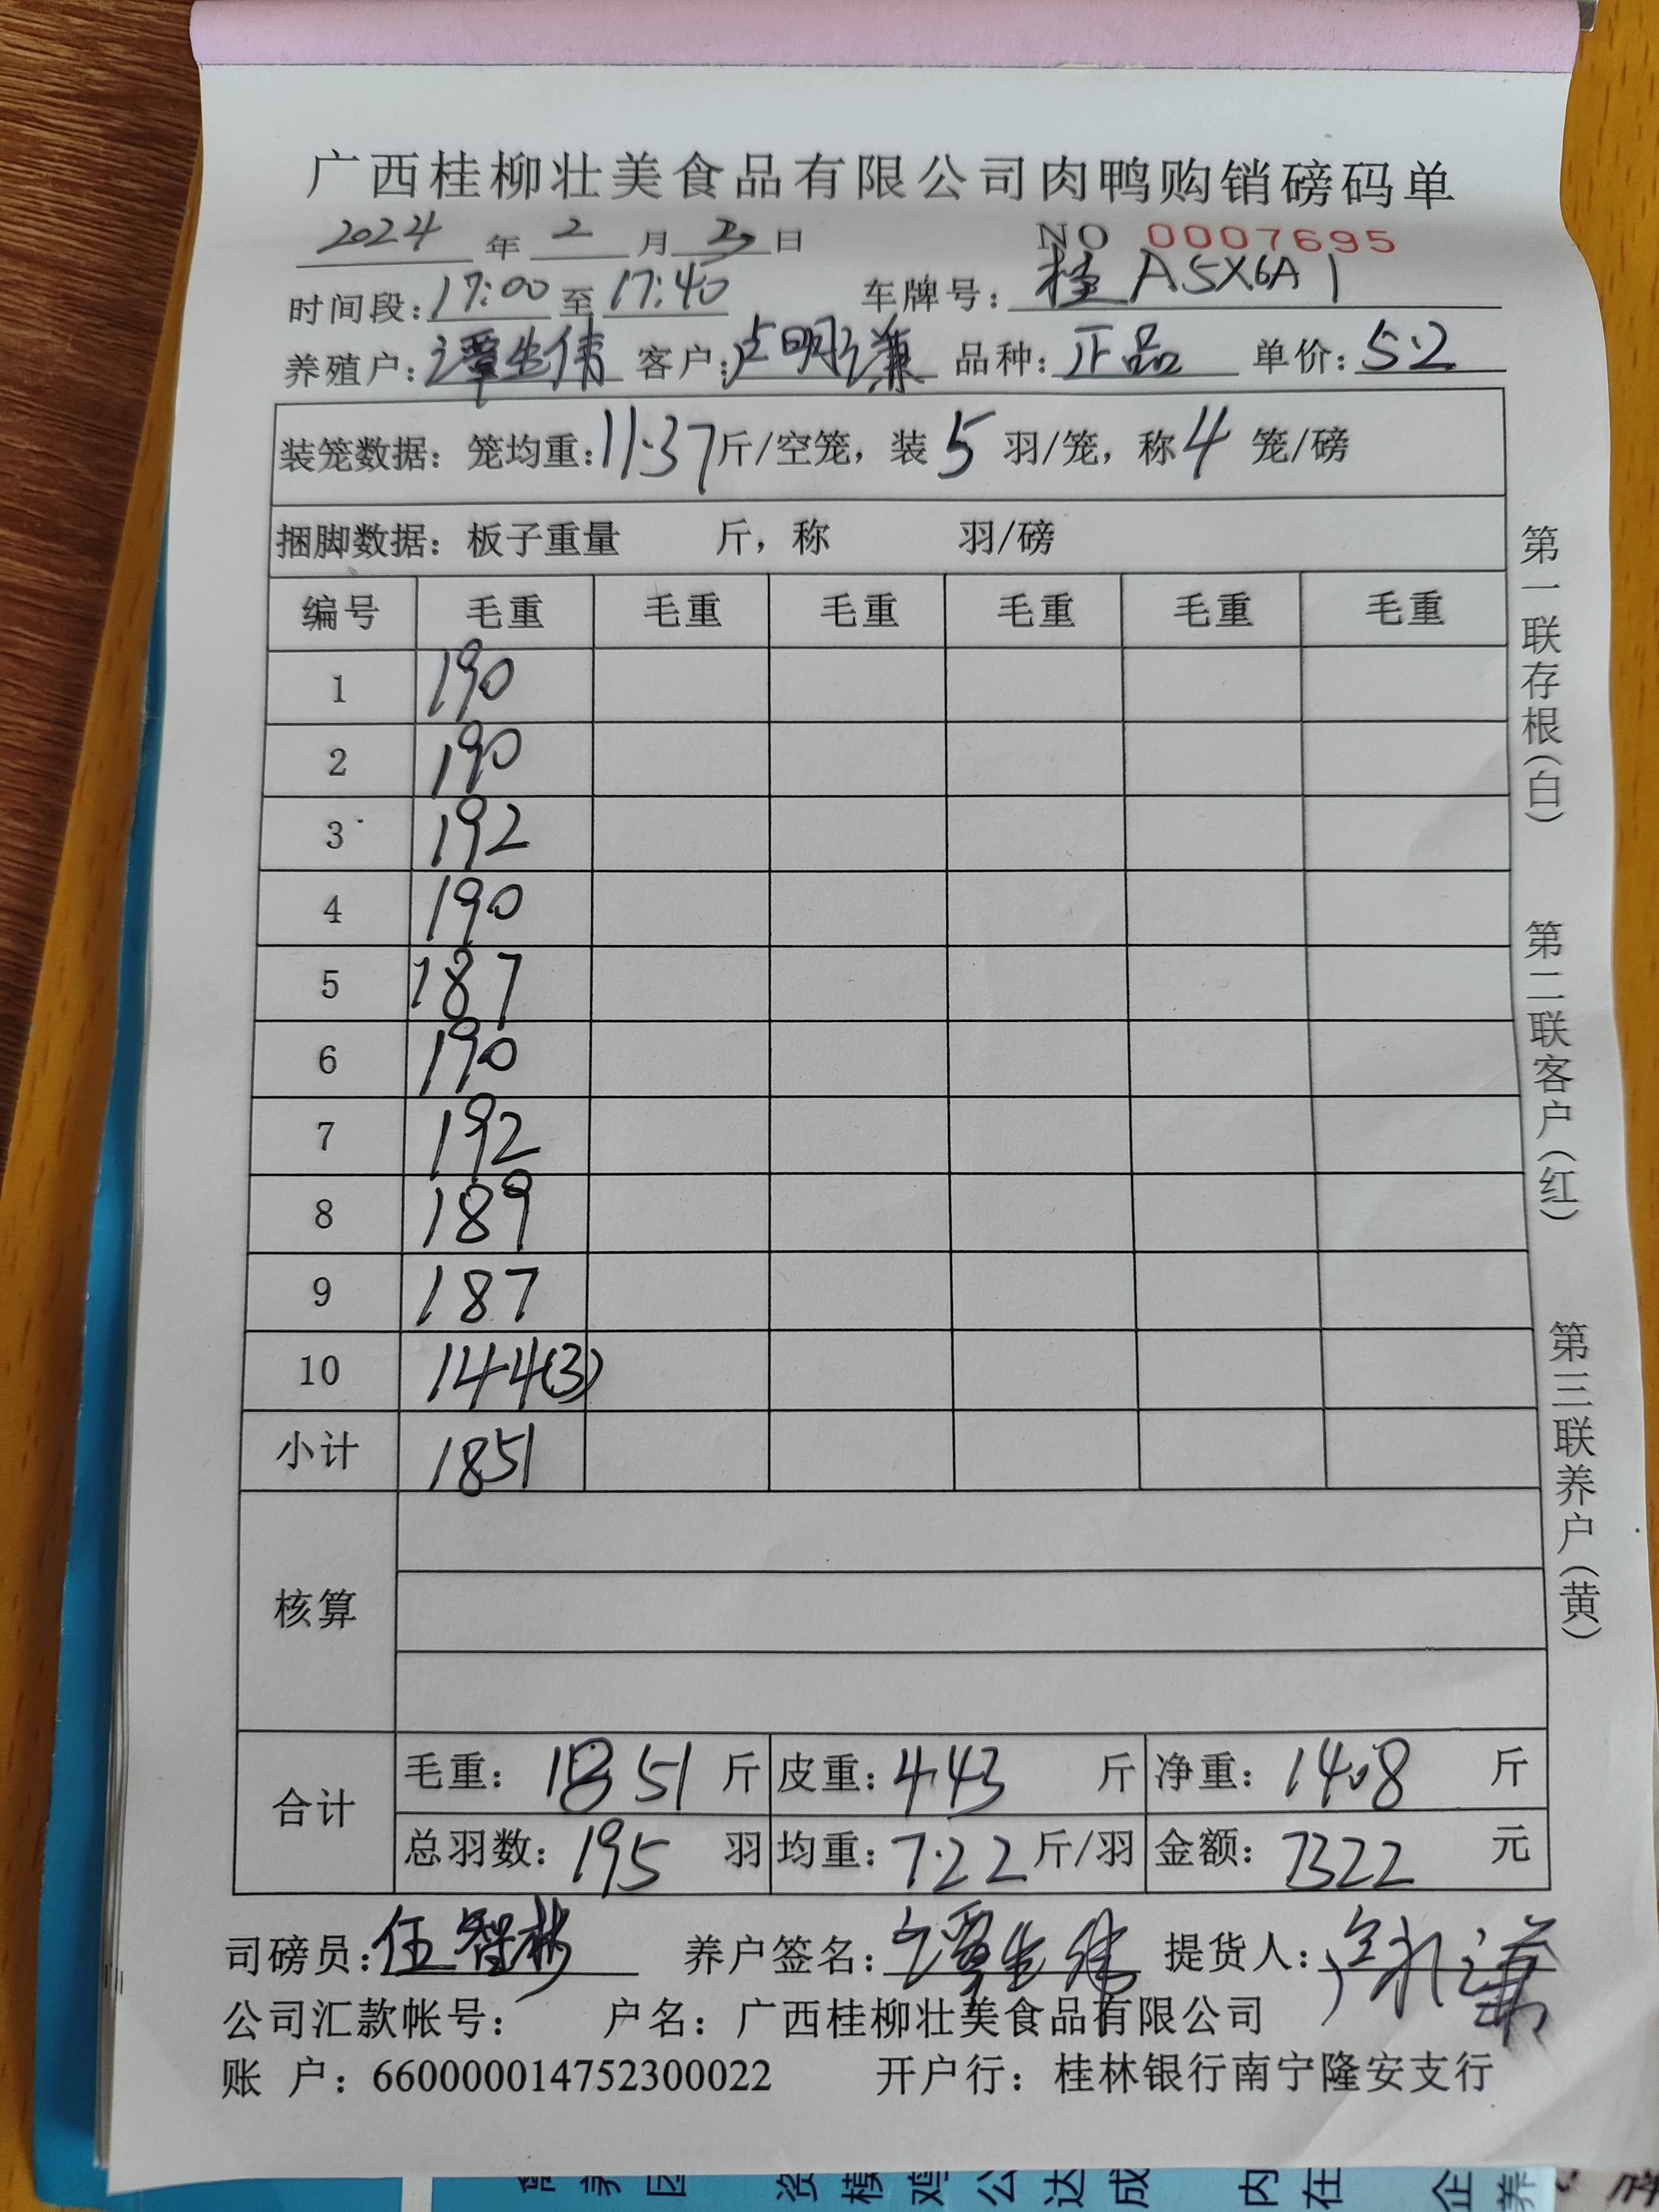 广西桂柳壮美食品有限公司肉鸭购销磅码单
2024 年 2 月 日 NO 0007695
时间段：17:00 至 17:40 车牌号：桂A5X6A1
养殖户：谭生伟 客户：卢明谦 品种：正品 单价：5.2
装笼数据：笼均重：11.37斤/空笼，装 5 羽/笼，称 4 笼/磅
捆脚数据：板子重量 斤，称 羽/磅
编号 毛重 毛重 毛重 毛重 毛重 毛重
1 190
2 190
3 192
4 190
5 187
6 190
7 192
8 189
9 187
10 144(3)
小计 1851
核算
合计
毛重：1851 斤 皮重：443 斤 净重：1408 斤
总羽数：195 羽 均重：7.22 斤/羽 金额：7322 元
司磅员：伍智彬 养户签名：谭生伟 提货人：
公司汇款帐号： 户名：广西桂柳壮美食品有限公司
账 户：660000014752300022 开户行：桂林银行南宁隆安支行
第一联存根（白） 第二联客户（红） 第三联养户（黄）